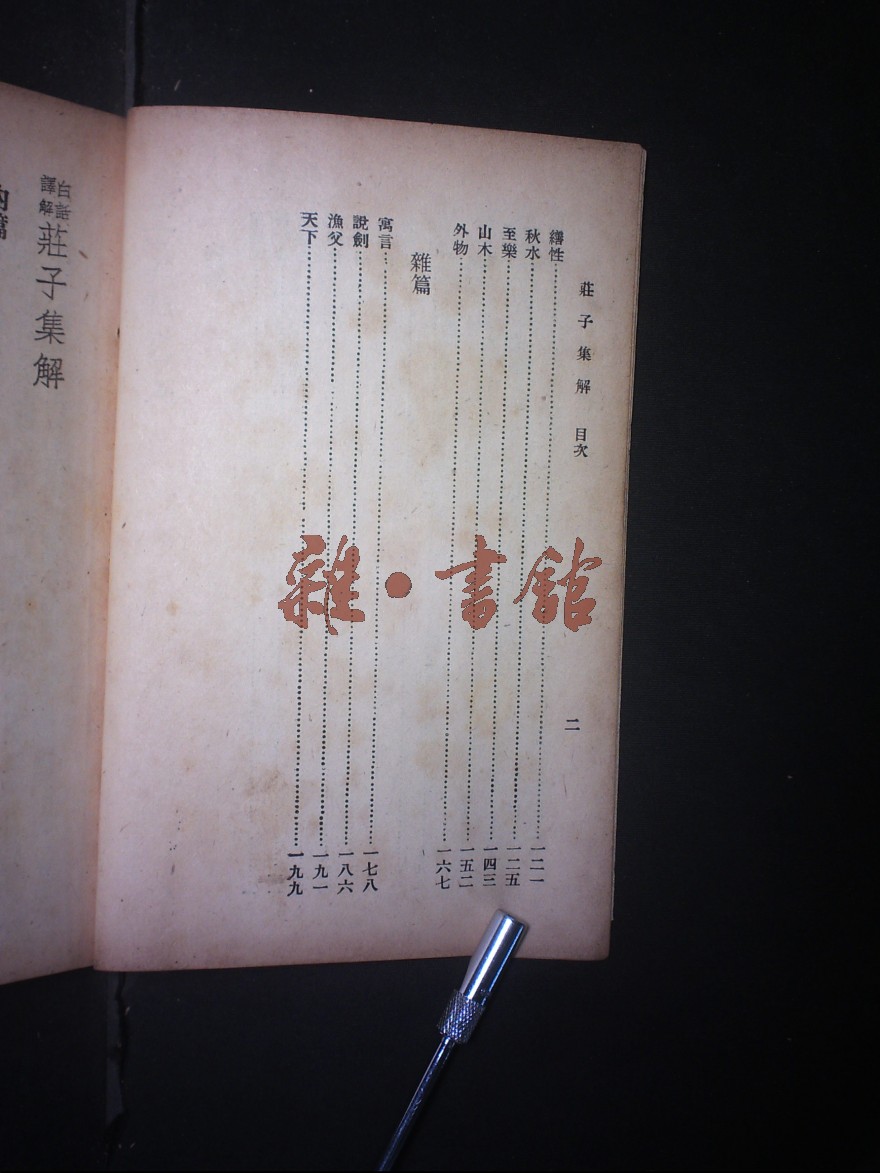 莊子集解 目次 二
繕性 一二一
秋水 一二五
至樂 一四三
山木 一五二
外物 一六七
雜篇
寓言 一七八
說劍 一八六
漁父 一九一
天下 一九九
白話譯解 莊子集解
內篇
雜·書館